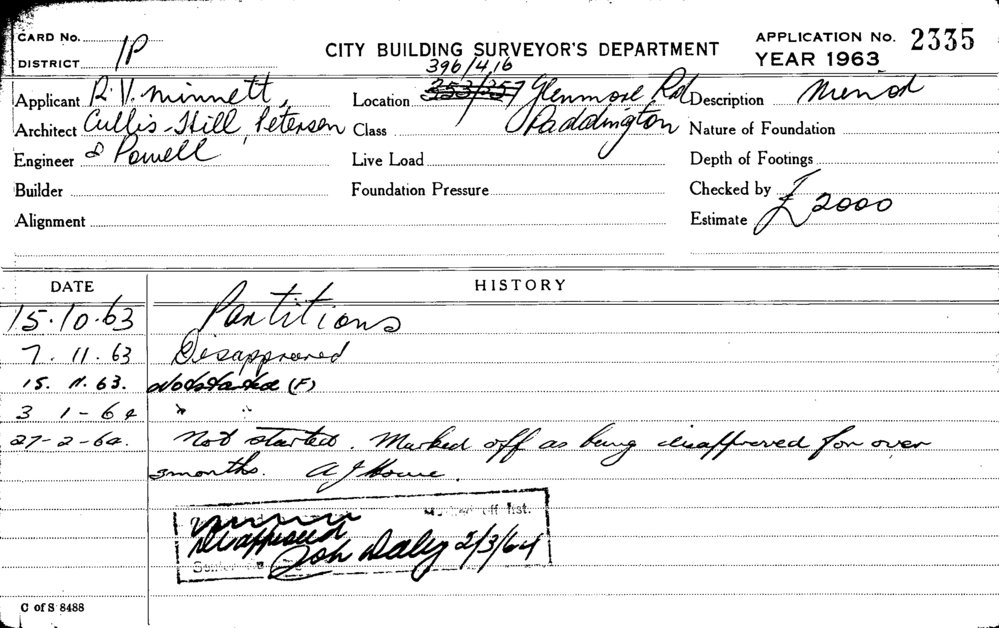 CARD No.
DISTRICT 1P
CITY BUILDING SURVEYOR'S DEPARTMENT
APPLICATION No. 2335
YEAR 1963
396/416
Applicant R. V. Minnett, Location 353/357 Glenmore Rd Description
Architect Cullis-Hill, Petersen Class Paddington Nature of Foundation
Engineer & Powell Live Load Depth of Footings
Builder Foundation Pressure Checked by
Alignment Estimate £2000
DATE HISTORY
15.10.63 Partitions
7.11.63 Disapproved
15. 11. 63. Not started (F)
3 1-64 " "
27-2-64. Not started. Marked off as being disapproved for over
3 months. A J Howe.
off list.
Disapproved
Daley 2/3/64
C of S 8488